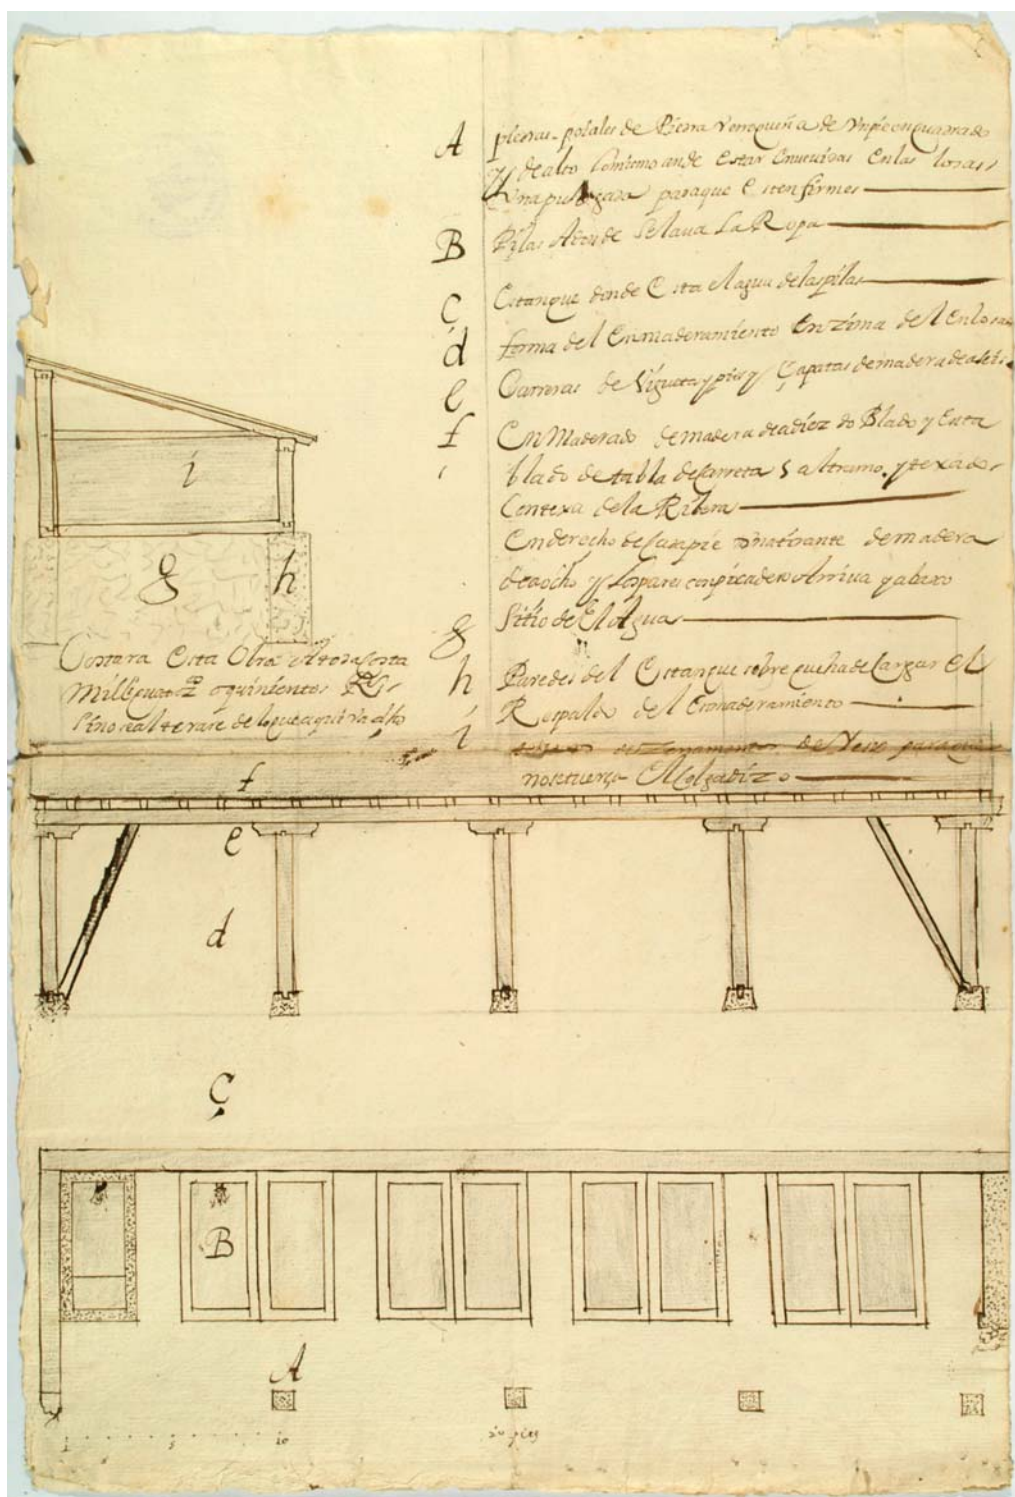 A
piedras
de Piedra
de Vn pie en quadrado
y de alto lo mismo an de Estar
En las losas
Vna pulgada paraque Esten firmes
B
Pilas Adonde Se laua La Ropa
Ç
Estanque donde Esta el agua de las pilas
d
forma del Enmaderamiento Enzima del Enlosado
e
Carreras de Vigueta y pies y Çapatas de madera de a seis
f
EnMaderado de madera de a diez do Blado y Enta
blado de tabla de
y texado
Con texa de la Ribera
En derecho de Cada pie
tirante de madera
de a ocho y
Arriua y abaxo
g
Sitio de El Agua
h
Paredes del Estanque sobre
de Cargar El
Respaldo del Enmaderamiento
i
de Yeso para que
no se tuerça El Colgadizo
i
g
h
Costara Esta Obra A toda Costa
Mill
quinientos
Sino se alterare de lo que aqui va dicho
f
e
d
Ç
B
A
1
5
10
20 pies